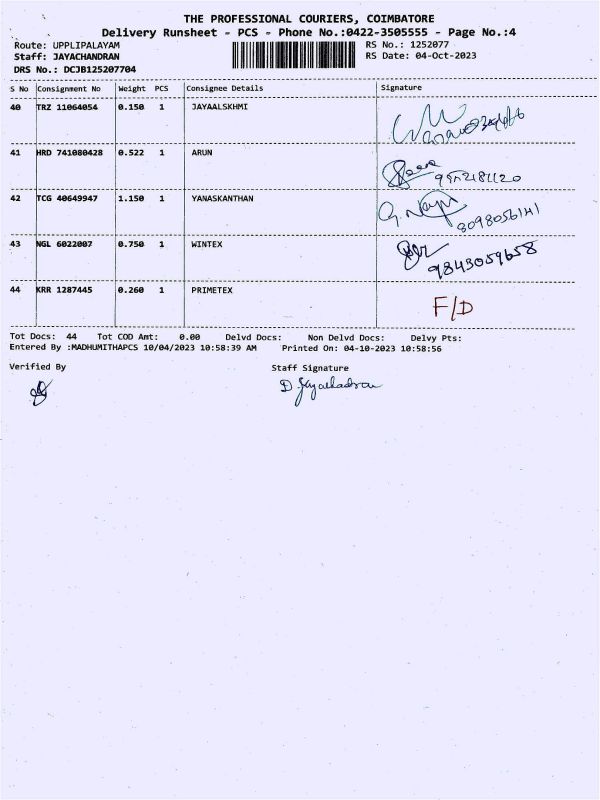 THE PROFESSIONAL COURIERS, COIMBATORE
Delivery Runsheet - PCS - Phone No.:0422-3505555 - Page No.:4
Route: UPPLIPALAYAM RS No.: 1252077
Staff: JAYACHANDRAN RS Date: 04-Oct-2023
DRS No.: DCJB125207704
S No Consignment No Weight PCS Consignee Details Signature
40 TRZ 11064054 0.150 1 JAYAALSKHMI
41 HRD 741080428 0.522 1 ARUN
42 TCG 40649947 1.150 1 YANASKANTHAN
8098056141
43 NGL 6022007 0.750 1 WINTEX
9843059658
44 KRR 1287445 0.260 1 PRIMETEX F/D
Tot Docs: 44 Tot COD Amt: 0.00 Delvd Docs: Non Delvd Docs: Delvy Pts:
Entered By :MADHUMITHAPCS 10/04/2023 10:58:39 AM Printed On: 04-10-2023 10:58:56
Verified By Staff Signature